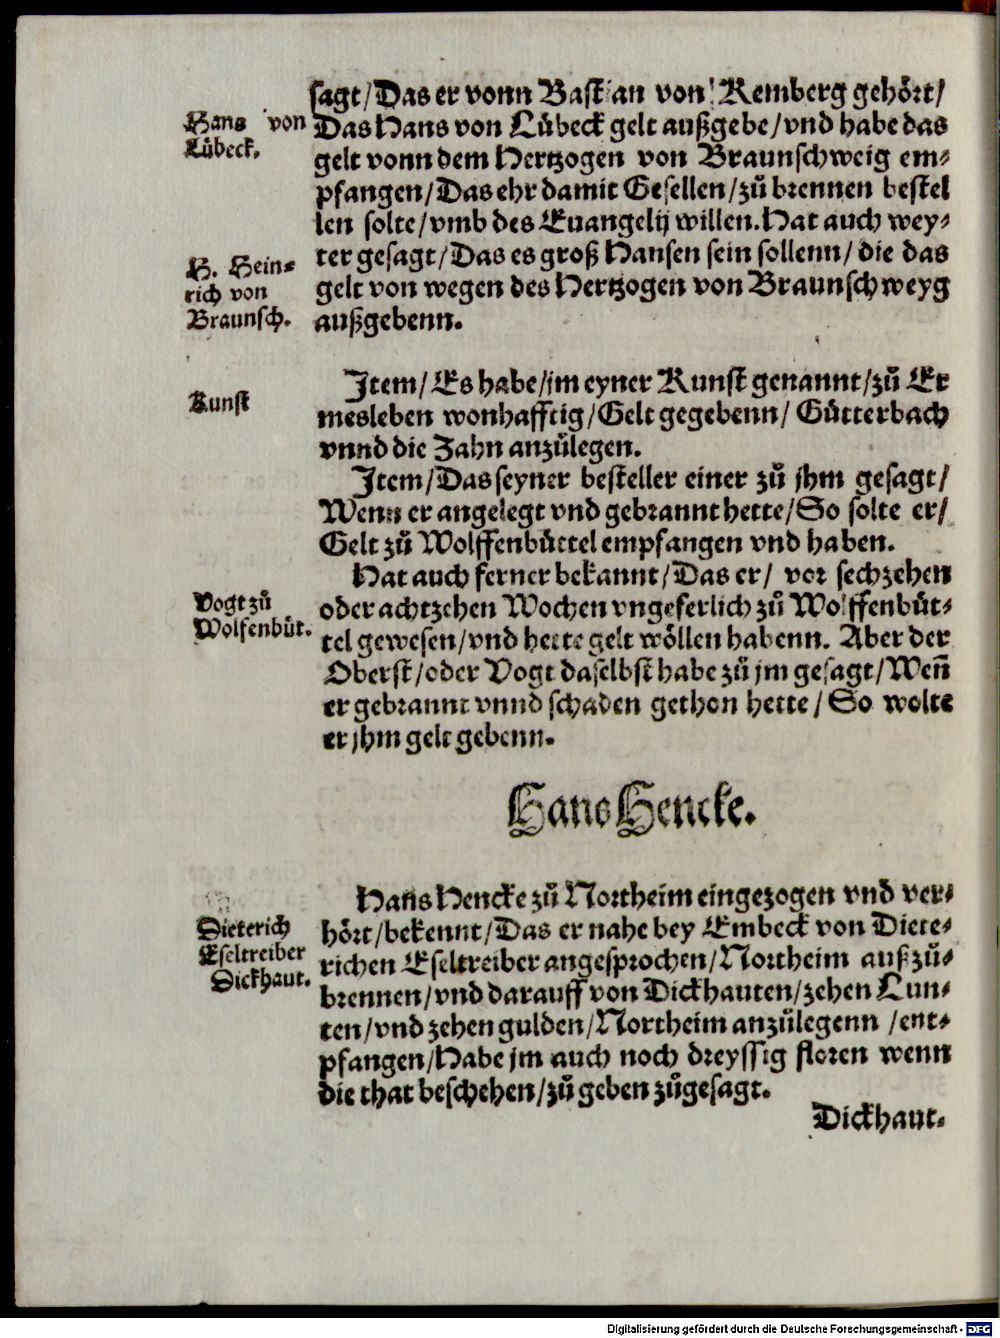 sagt/Das er vonn Bastian von Kemberg gehört/
Hans von
Lübeck.
Das Hans von Lübeck gelt außgebe/vnd habe das
gelt vonn dem Hertzogen von Braunschweig em-
pfangen/Das ehr damit Gesellen/zů brennen bestel
len solte/vmb des Euangelij willen. Hat auch wey-
H. Hein-
rich von
Braunsch.
ter gesagt/Das es groß Hansen sein sollenn/die das
gelt von wegen des Hertzogen von Braunschweyg
außgebenn.
Kunst
Item/Es habe/jm eyner Kunst genannt/zů Er
mesleben wonhafftig/Gelt gegebenn/Gütterbach
vnnd die Zahn anzůlegen.
Item/Das seyner besteller einer zů jhm gesagt/
Wenn er angelegt vnd gebrannt hette/So solte er/
Gelt zů Wolffenbüttel empfangen vnd haben.
Vogt zů
Wolfenbüt.
Hat auch ferner bekannt/Das er/ vor sechzehen
oder achtzehen Wochen vngeferlich zů Wolffenbüt-
tel gewesen/vnd hette gelt wöllen habenn. Aber der
Oberst/oder Vogt daselbst habe zů jm gesagt/Weñ
er gebrannt vnnd schaden gethon hette/So wolte
er jhm gelt gebenn.
Hans Hencke.
Dieterich
Eseltreiber
Dickhaut.
Hans Hencke zů Northeim eingezogen vnd ver-
hört/bekennt/Das er nahe bey Embeck von Diete-
richen Eseltreiber angesprochen/Northeim außzů-
brennen/vnd darauff von Dickhauten/zehen Lun-
ten/vnd zehen gulden/Northeim anzůlegenn/ent-
pfangen/Habe jm auch noch dreyssig floren wenn
die that beschehen/zů geben zůgesagt.
Dickhaut-
Digitalisierung gefördert durch die Deutsche Forschungsgemeinschaft - DFG